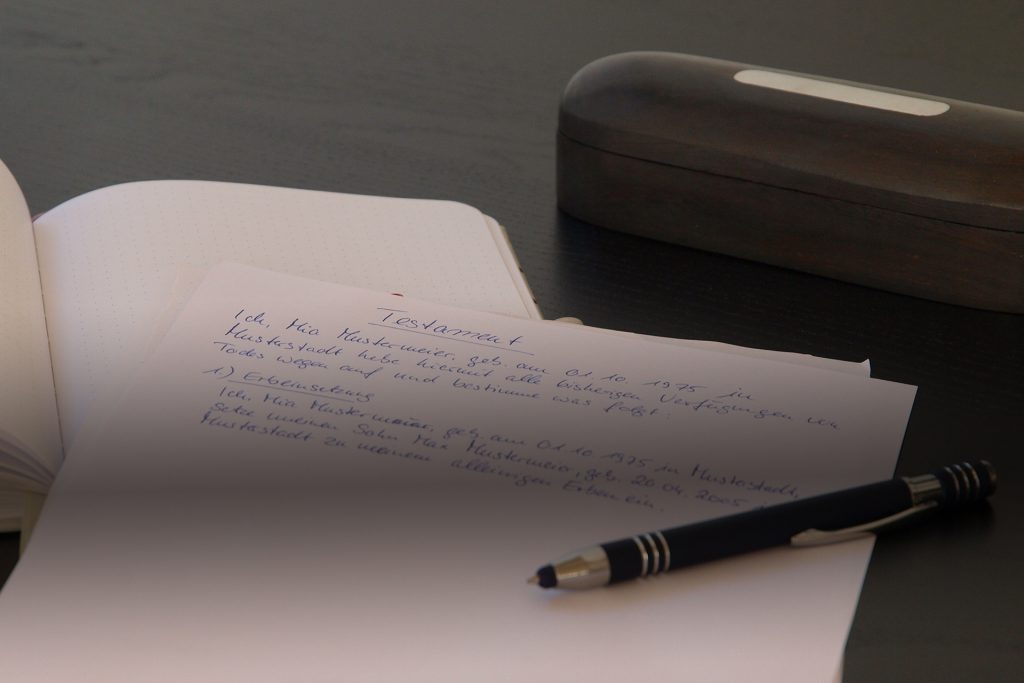 Testament
Ich, Mia Mustermeier, geb. am 01.10.1975 in
Musterstadt hebe hiermit alle bisherigen Verfügungen von
Todes wegen auf und bestimme was folgt:
1) Erbeinsetzung
Ich, Mia Mustermeier, geb. am 01.10.1975 in Musterstadt,
setze meinen Sohn Max Mustermeier, geb. 20.04.2005
Musterstadt zu meinem alleinigen Erben ein.